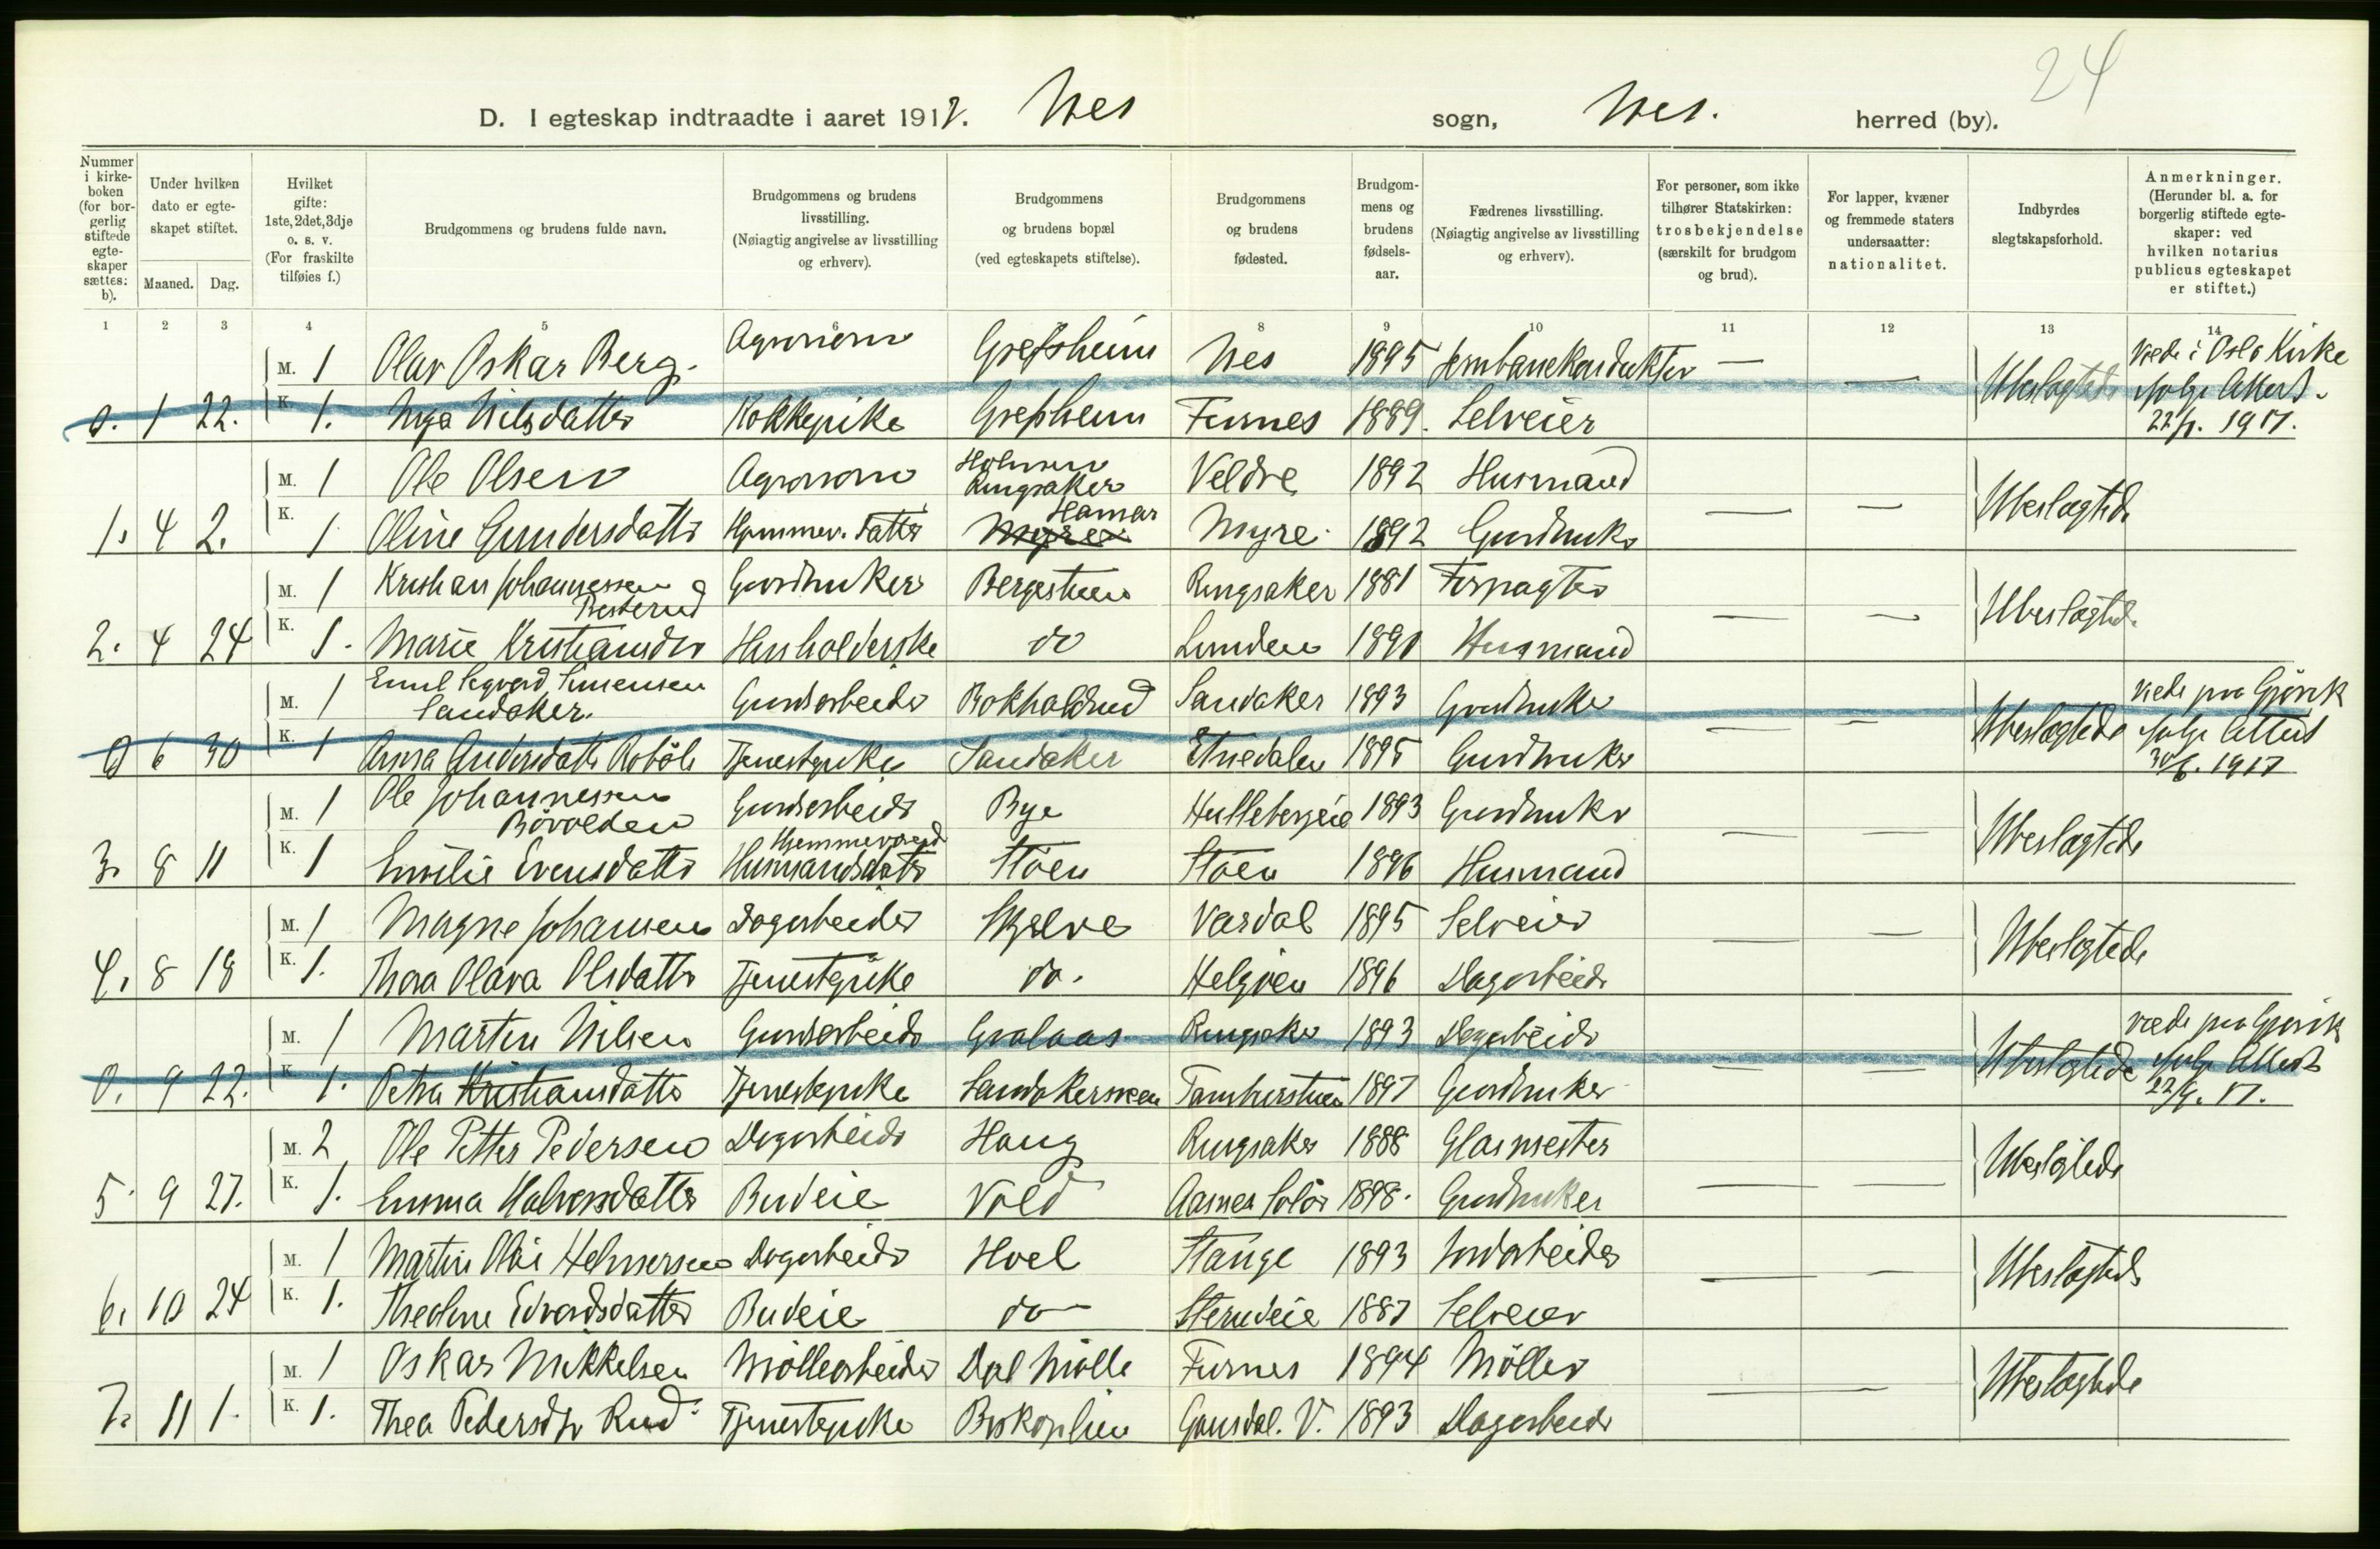 24
D. I egteskap indtraadte i aaret 1917. Nes sogn, Nes. herred (by).
Nummer i kirke-boken (for bor-gerlig stiftede egte-skaper sættes: b).
Under hvilken dato er egte-skapet stiftet.
Maaned. Dag.
Hvilket gifte: 1ste, 2det, 3dje o. s. v. (For fraskilte tilføies f.)
Brudgommens og brudens fulde navn.
Brudgommens og brudens livsstilling. (Nøiagtig angivelse av livsstilling og erhverv).
Brudgommens og brudens bopæl (ved egteskapets stiftelse).
Brudgommens og brudens fødested.
Brudgom-mens og brudens fødsels-aar.
Fædrenes livsstilling. (Nøiagtig angivelse av livsstilling og erhverv).
For personer, som ikke tilhører Statskirken: trosbekjendelse (særskilt for brudgom og brud).
For lapper, kvæner og fremmede staters undersaatter: nationalitet.
Indbyrdes slegtskapsforhold.
Anmerkninger. (Herunder bl. a. for borgerlig stiftede egte-skaper: ved hvilken notarius publicus egteskapet er stiftet.)
1 2 3 4 5 6 8 9 10 11 12 13 14
M. 1 Olav Oskar Berg. Agronom Grefsheim Nes 1895 Jernbanekonduktør — — Ubeslægtede Viede i Oslo Kirke
0. 1 22. K. 1. Inga Nilsdatter Kokkepike Grefsheim Furnes 1889. Selveier ifølge Attest. 22/1. 1917.
M. 1 Ole Olsen Agronom Holmen Ringsaker Veldre 1892 Husmand
1. 4 2. K. 1 Oline Gundersdatter Hjemmev. datter Hamar Myre Myre 1892 Gaardbruker — — Ubeslægtede
M. 1 Kristian Johannessen Gaardbruker Bergesteen Ringsaker 1881 Forpagter
2. 4 24 K. 1. Marie Kristiansdtr Husholderske do Lunden 1890 Husmand — — Ubeslægtede
M. 1 Emil Sigvard Simensen Sandaker. Gaardsarbeider Bokhaldrud Sandaker 1893 Gaardbruker viede paa Gjøvik
0 6 30 K. 1 Anna Andersdatter Tjenestepike Sandaker Etnedalen 1895 Gaardbruker — — Ubeslægtede ifølge Attest 30/6. 1917
M. 1 Ole Johannessen Gaardsarbeider Bye 1893 Gaardbruker
3. 8 11 K. 1 Emilie Evensdatter Hjemmeværend Husmandsdatter Støen Støen 1896 Husmand — — Ubeslægtede
M. 1 Magne Johansen Dagarbeider Skjelve Vardal 1895 Selveier
4. 8 18 K. 1. Thora Olava Olsdatter Tjenestepike do. Helgøen 1896 Dagarbeider — — Ubeslægtede
M. 1 Martin Nilsen Gaardsarbeider Gralaas Ringsaker 1893 Dagarbeider viede paa Gjøvik
0. 9 22. K. 1. Petra Kristiansdatter Tjenestepike 1897 Gaardbruker — — Ubeslægtede ifølge Attest 22/9. 17.
M. 2 Ole Petter Pedersen Dagarbeider Haug Ringsaker 1888 Glasmester
5 9 27. K. 1. Emma Halvorsdatter Budeie Vold Aasnes Solør 1898. Gaardbruker — — Ubeslægtede
M. 1 Martin Olai Helmersen Dagarbeider Hoel Stange 1893 Jordarbeider
6. 10 24 K. 1. Theoline Edvardsdatter Budeie do 1887 Selveier — — Ubeslægtede
M. 1 Oskar Mikkelsen Møllearbeider Dal Mølle Furnes 1894 Møller
7. 11 1. K. 1. Thea Pedersdtr Rud. Tjenestepike Gausdal. V. 1893 Dagarbeider — — Ubeslægtede